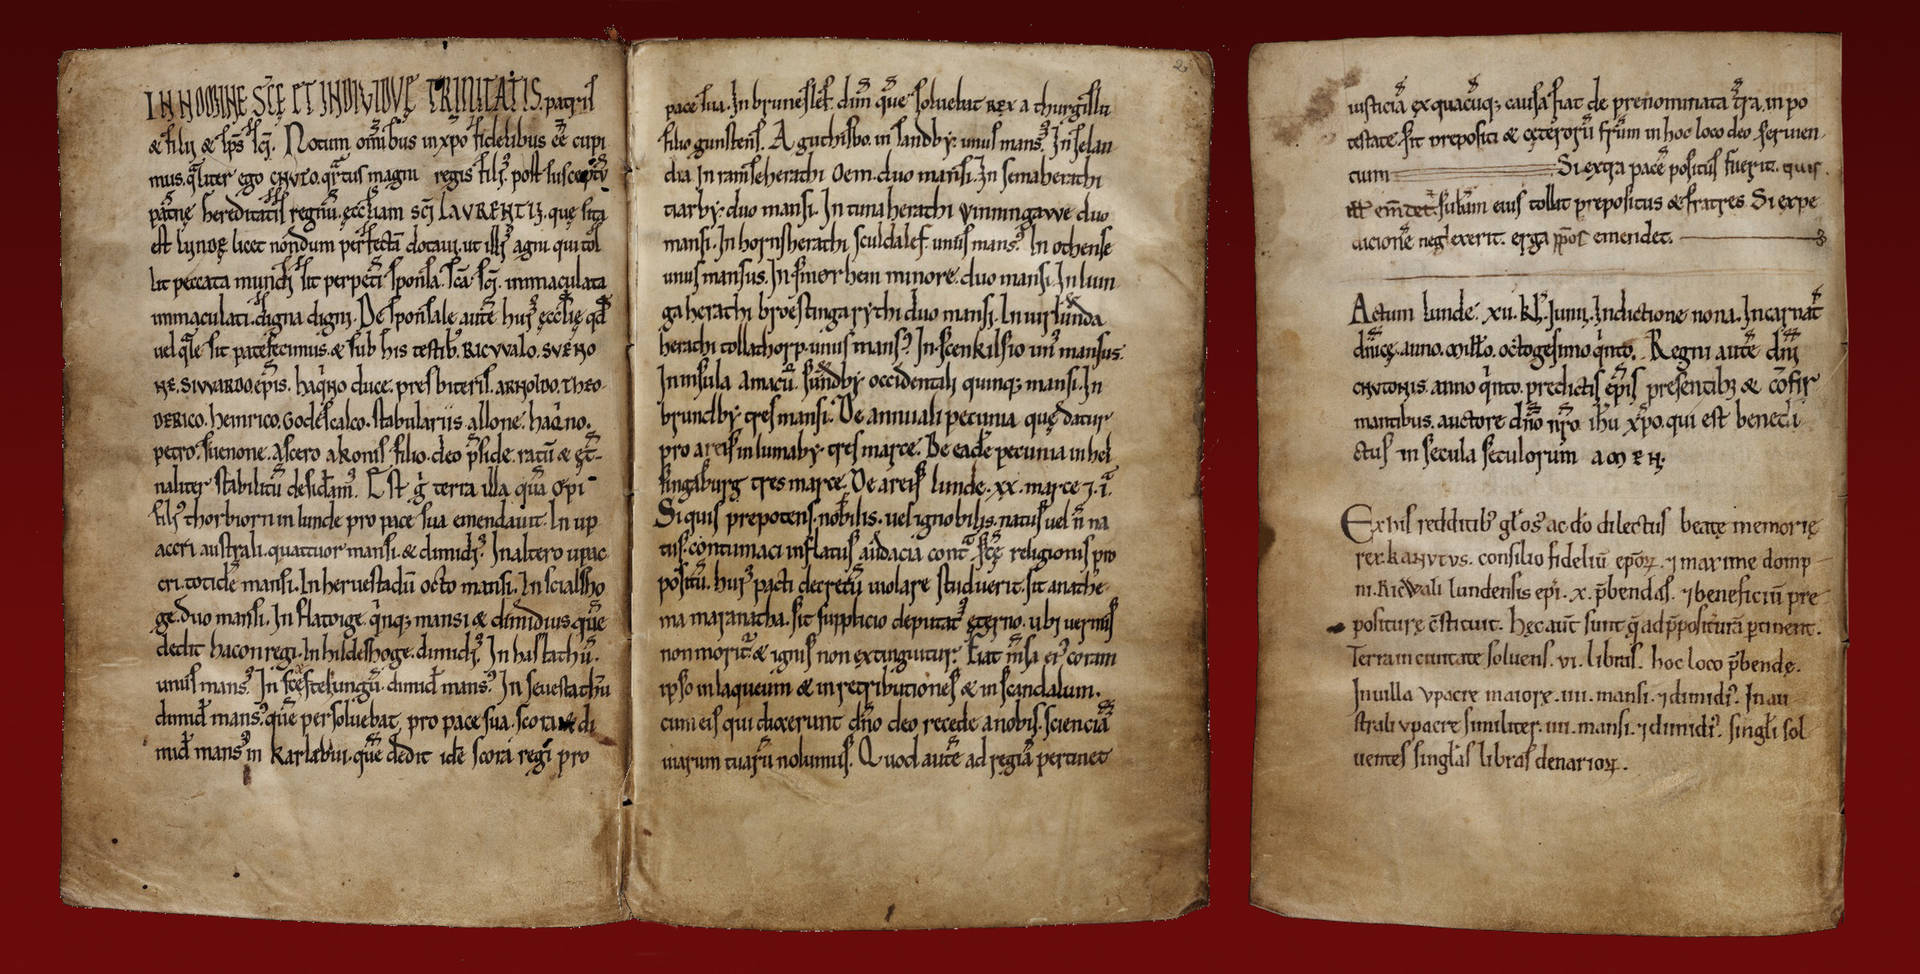 IN NOMINE SCE ET INDIVIDVE TRINITATIS. patris
& filii & sps sci. Notum omibus in xpo fidelibus ee cupi
mus. qliter ego CNVTO. qrtus magni regis fili9. post susceptu
patne hereditatis regnu. ecclesiam sci LAVRENTII. que sita
est lunde licet nondum perfecta dotavi. ut illi9 agni qui tol
lit peccata mundi sit perpeti sponsa. sca. sci. immaculata
immaculati. digna digni. De sponsale aute hui9 ecclie qd
uel qle sit patefecimus. & sub his testib9. RICVVALO. SVENO
NE. SIVVARDO. epis. haqno duce. presbiteris. ARNOLDO. THEO-
DERICO. heinrico. Godescalco. stabulariis. allone. haqno.
petro. suenone. Ascero akonis filio. deo pside. ratu & et-
naliter stabilitu desidam9. Est g terra illa qua opi
fili9 thorbiorn in lunde pro pace sua emendauit. In up
accri australi. quattuor mansi. & dimidi9. In altero upac
cri. totide mansi. In heruestadu octo mansi. In scialsho
ge. duo mansi. In flatoige. qnq; mansi & dimidius. que
dedit hacon regi. In hildeshoge. dimidi9. In hastathu.
unus mans9. In scestelungu. dimid mans9. In seuestathu
dimid mans9. que persoluebat pro pace sua. scora & di
mid mans9 in karlabiii. que dedit ide scora regi pro
pace sua. In bruneslef. dim que soluebat REX a thurgislu
filio gunstens. A guthisbo. in sandby. unus mans9. In selan
dia. In ramseherathi oem. duo mansi. In semaherathi
tiarby. duo mansi. In tunaherathi vvinningavve duo
mansi. In hornsherathi sculdalef. unus mans9. In othense
unus mansus. In smerhem minore. duo mansi. In lium
gaherathi broestingarythi duo mansi. In uirlunda
herathi tollathorp. unus mans9. In scenkilsio un9 mansus.
In insula amacu. sundby occidentali quinq; mansi. In
brundby. tres mansi. De annuali pecunia que datur
pro areis in lumaby. tres marce. De eade pecunia in hel
singaburg tres marce. De areis lunde. xx. marce 7. i.
Si quis prepotens. nobilis. uel ignobilis. natus uel n na
tus. contumaci inflatus audacia cont sce religionis pro
positu. hui9 pacti decretu uiolare studuerit. sit anathe-
ma maranatha. sit supplicio deputat9 eterno. ubi uermis
non morit & ignis non extinguitur. Fiat msa ei9 coram
ipso in laqueum & in retributiones & in scandalum.
cum eis qui dixerunt dno deo recede a nobis. sciencia
uiarum tuaru nolumus. Quod aute ad regia pertinet
iusticia ex quacuq; causa fiat de prenominata tra. in po
testate. sit prepositi & ceteroru frum in hoc loco deo seruien-
cium Si extra pace positus fuerit. quis.
subm eius tollit prepositus & fratres. Si expe
dicione neglexerit. erga ppos emendet.
Actum lunde. xii. kl. Junii. Indictione nona. Incarnat
dnice. anno. millo. octogesimo qnto. Regni aute dni
CNVTONIS. anno qnto. predictis epis presentib; & cofir
mantibus. auctore dno nro ihu xpo. qui est benedi
ctus in secula seculorum AMEN.
Ex his redditib9 glos9 ac do dilectus beate memorie
rex. KANVTVS. consilio fideliu. epor. 7 maxime domp-
ni. Ricwali lundensis epi. x. pbendas. 7 beneficiu pre
positure cstituit. hec aut sunt q ad pposit ura ptinent.
Terra in ciuitate soluens. vi. libras. hoc loco pbende.
In uilla vpacre maiore. iiii. mansi. 7 dimidi9. In au
strali vpacre similiter. iiii. mansi. 7 dimidi9. singli sol
uentes singlas libras denarior.